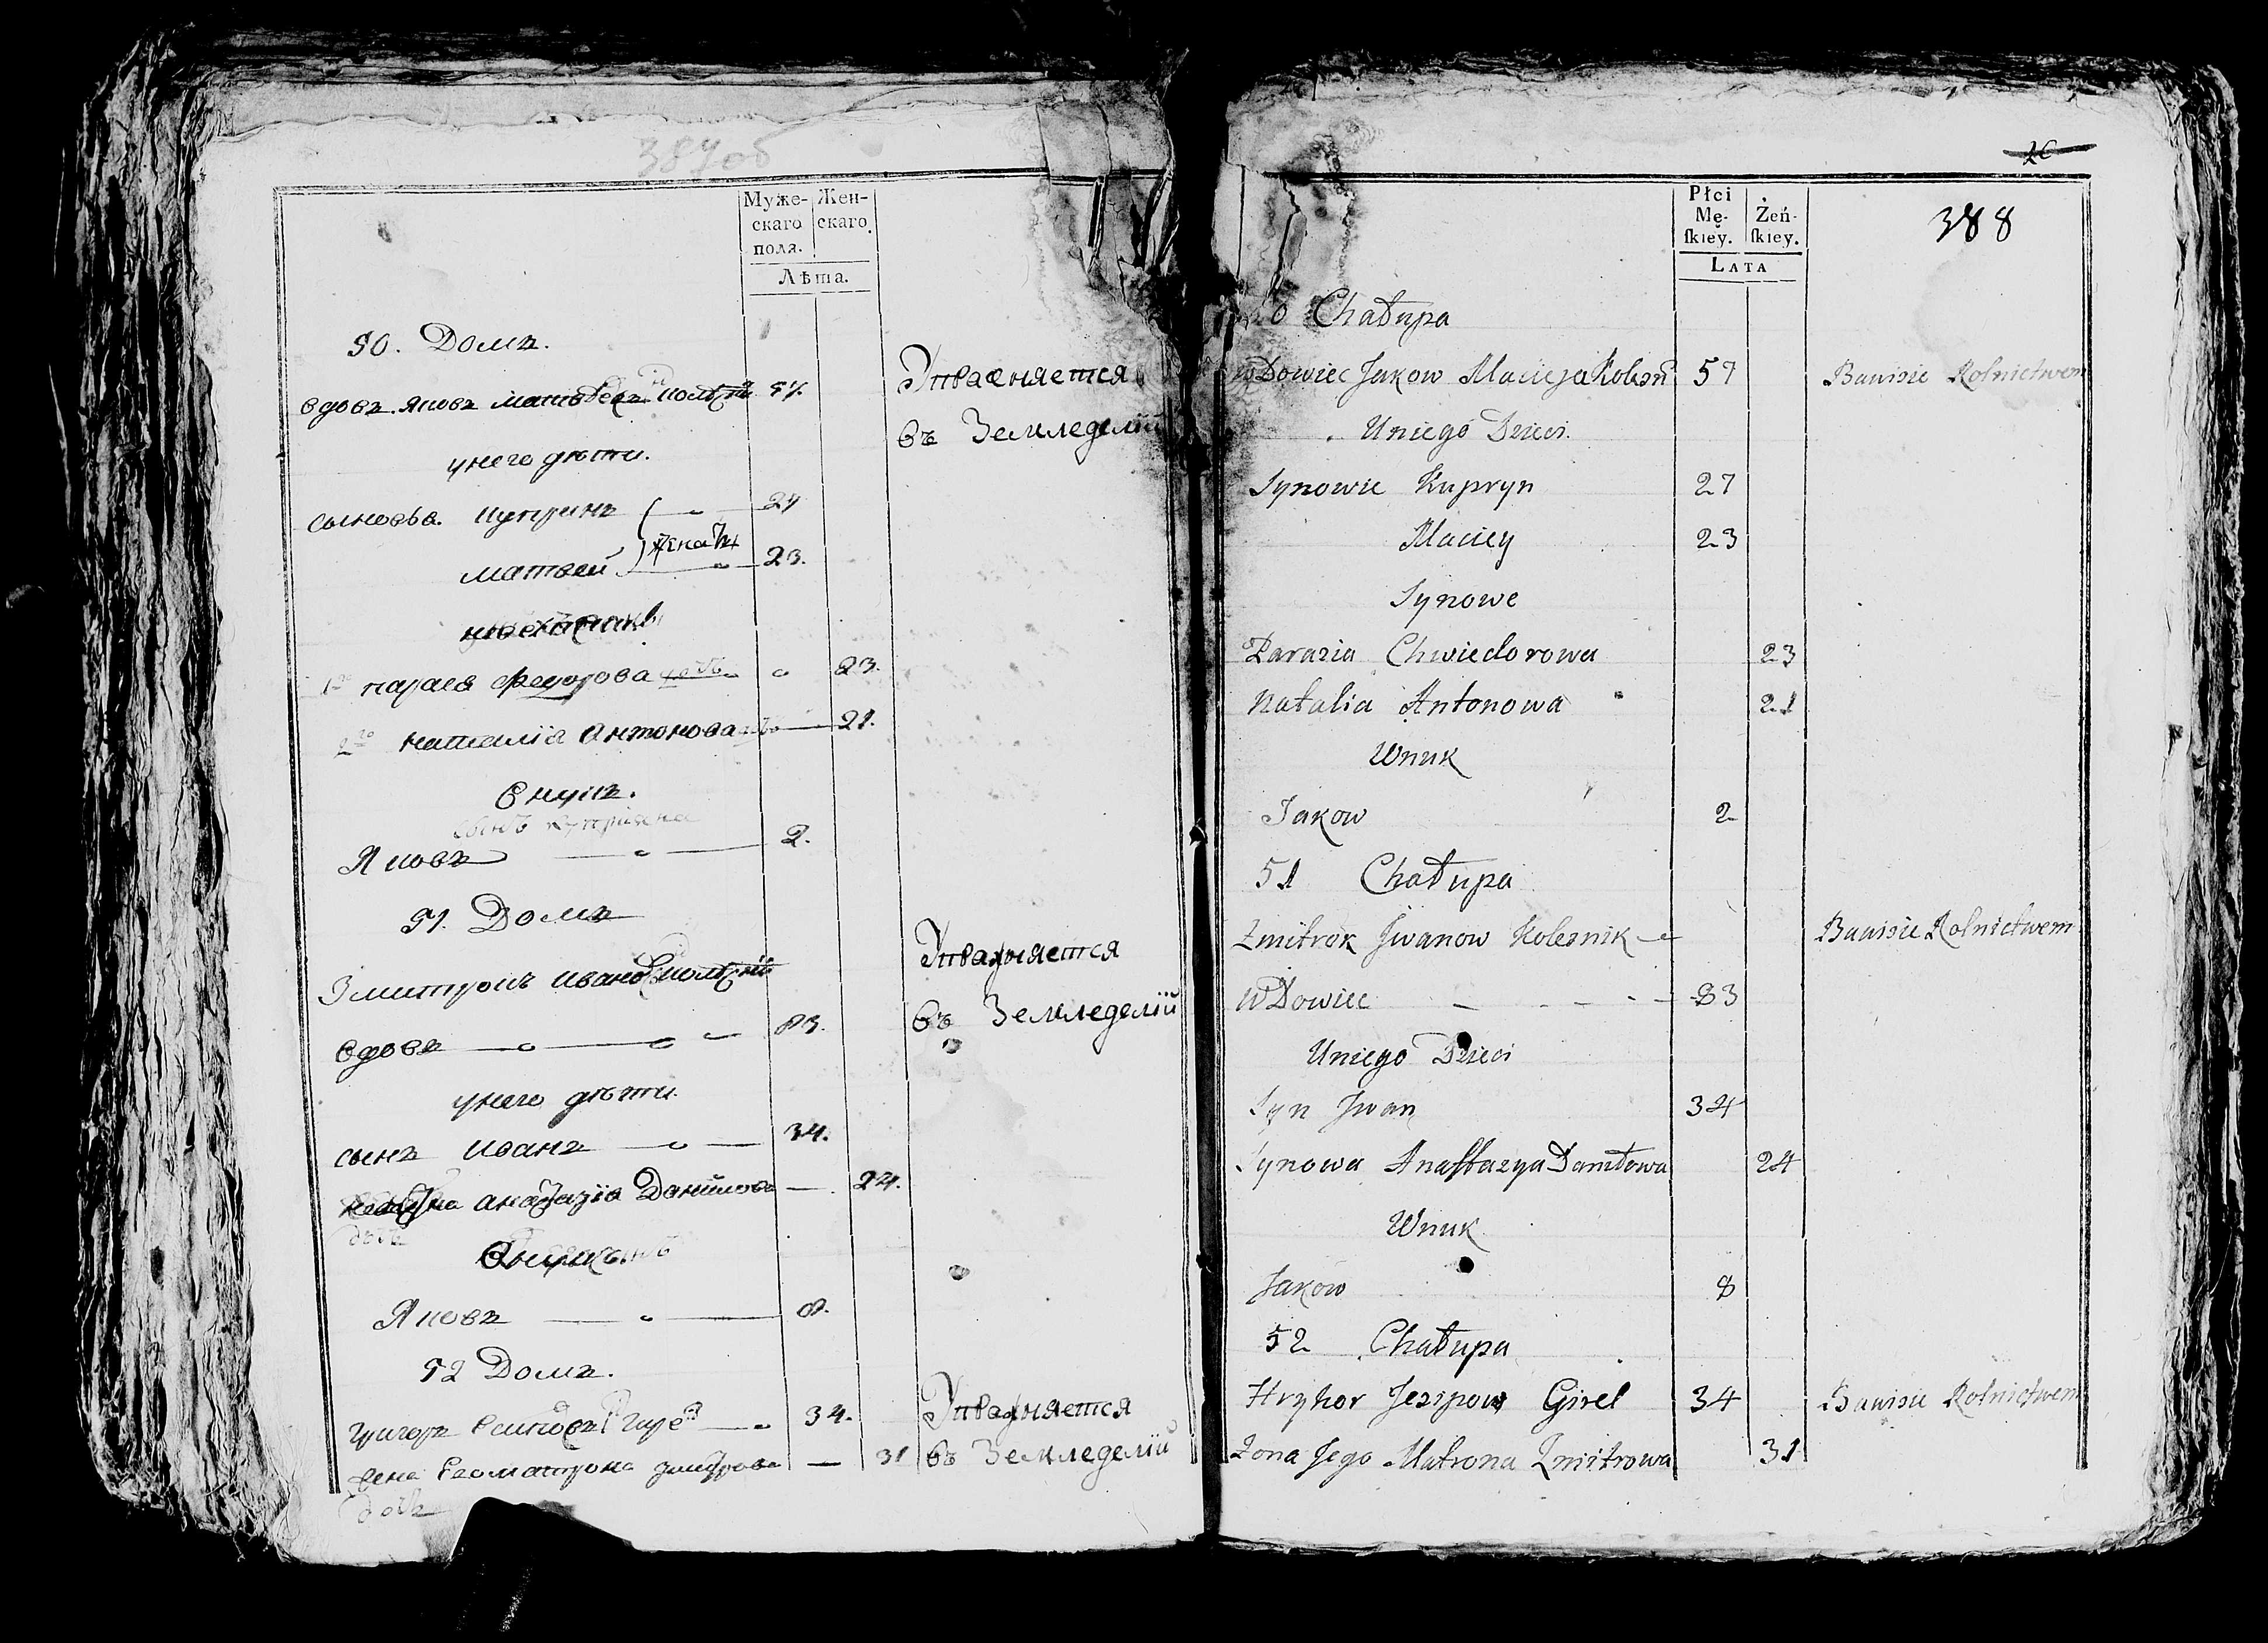 387 об
Муже-
скаго
поля.
Жен-
скаго.
Лѣта.
50. Домъ.
вдовъ Яковъ 57.
Упражняется
въ Земледелій
у него дѣти.
сыновья. Купринъ 27
женаты
Матвей 23.
1я Парася Федорова 23.
2я Наталія Антонова 21.
Внукъ.
сынъ Куприяна
Яковъ 2.
51. Домъ
Змитрокъ Иванов
Упражняется
въ Земледелій
вдовъ 83.
у него дѣти.
сынъ Иванъ 34.
Анастазія Данилова 24.
дочь
Внукъ.
Яковъ 8.
52 Домъ.
Григоръ Есиповъ Гире 34.
Упражняется
жена Его Матрона Змитрова 31
въ Земледелій
дочь
388
Płci
Mę-
skiey.
Żeń-
skiey.
LATA
Chałupa
wDowiec Jakow Macieja Kolesń 57 Bawisie Rolnictwem
Uniego Dzieci.
Synowie Kupryn 27
Maciey 23
Synowe
Parazia Chwiedorowa 23
Natalia Antonowa 21
Wnuk
Jakow 2
51 Chałupa
Zmitrok Jwanow Kolesnik Bawisie Rolnictwem
wDowiec 83
Uniego Dzieci
Syn Jwan 34
Synowa Anastazya Daniłowa 24
Wnuk
Jakow 8
52 Chałupa
Hryhor Jezipow Girel 34 Bawisie Rolnictwem
Zona Jego Matrona Zmitrowa 31